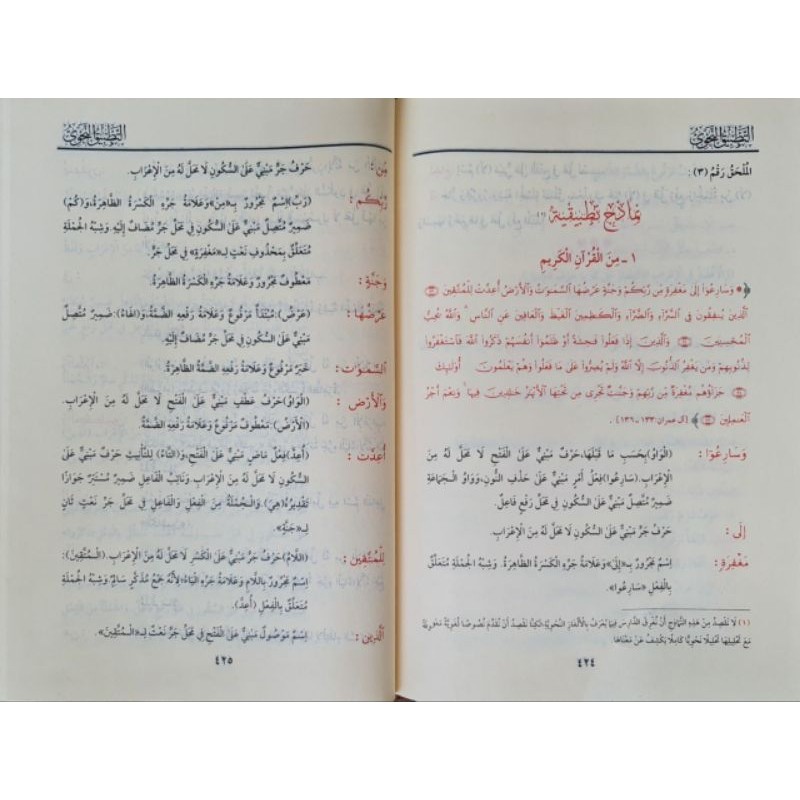 التطبيق النحوي
المُلْحَقُ رَقْمُ (٣) :
نماذج تطبيقية (١)
١ - مِنَ الْقُرْآنِ الْكَرِيمِ
﴿ ۞ وَسَارِعُوٓا۟ إِلَىٰ مَغْفِرَةٍ مِّن رَّبِّكُمْ وَجَنَّةٍ عَرْضُهَا السَّمَٰوَٰتُ وَالْأَرْضُ أُعِدَّتْ لِلْمُتَّقِينَ ۝
الَّذِينَ يُنفِقُونَ فِى السَّرَّآءِ وَالضَّرَّآءِ وَالْكَٰظِمِينَ الْغَيْظَ وَالْعَافِينَ عَنِ النَّاسِ ۗ وَاللَّهُ يُحِبُّ
الْمُحْسِنِينَ ۝ وَالَّذِينَ إِذَا فَعَلُوا۟ فَٰحِشَةً أَوْ ظَلَمُوٓا۟ أَنفُسَهُمْ ذَكَرُوا۟ اللَّهَ فَاسْتَغْفَرُوا۟
لِذُنُوبِهِمْ وَمَن يَغْفِرُ الذُّنُوبَ إِلَّا اللَّهُ وَلَمْ يُصِرُّوا۟ عَلَىٰ مَا فَعَلُوا۟ وَهُمْ يَعْلَمُونَ ۝ أُو۟لَٰٓئِكَ
جَزَآؤُهُم مَّغْفِرَةٌ مِّن رَّبِّهِمْ وَجَنَّٰتٌ تَجْرِى مِن تَحْتِهَا الْأَنْهَٰرُ خَٰلِدِينَ فِيهَا ۚ وَنِعْمَ أَجْرُ
الْعَٰمِلِينَ ۝ ﴾ [آل عمران: ١٣٣-١٣٦].
وَسَارِعُوٓا۟ : (الْوَاوُ) بِحَسَبِ مَا قَبْلَهَا، حَرْفٌ مَبْنِيٌّ عَلَى الْفَتْحِ لَا مَحَلَّ لَهُ مِنَ
الْإِعْرَابِ. (سَارِعُوا) فِعْلُ أَمْرٍ مَبْنِيٌّ عَلَى حَذْفِ النُّونِ، وَوَاوُ الْجَمَاعَةِ
ضَمِيرٌ مُتَّصِلٌ مَبْنِيٌّ عَلَى السُّكُونِ فِي مَحَلِّ رَفْعٍ فَاعِلٌ.
إِلَىٰ : حَرْفُ جَرٍّ مَبْنِيٌّ عَلَى السُّكُونِ لَا مَحَلَّ لَهُ مِنَ الْإِعْرَابِ.
مَغْفِرَةٍ : اِسْمٌ مَجْرُورٌ بِـ«إِلَى» وَعَلَامَةُ جَرِّهِ الْكَسْرَةُ الظَّاهِرَةُ. وَشِبْهُ الْجُمْلَةِ مُتَعَلِّقٌ
بِالْفِعْلِ «سَارِعُوا».
(١) لَا نَقْصِدُ مِنْ هَذِهِ النَّمَاذِجِ أَنْ نُغْرِقَ الدَّارِسَ فِيمَا يُعْرَفُ بِالْأَلْغَازِ النَّحْوِيَّةِ، لَكِنَّنَا نَقْصِدُ أَنْ نُقَدِّمَ نُصُوصًا لُغَوِيَّةً
مَعَ تَحْلِيلِهَا تَحْلِيلًا نَحْوِيًّا كَامِلًا يَكْشِفُ عَنْ مَعْنَاهَا.
٤٢٤
التطبيق النحوي
مِّن : حَرْفُ جَرٍّ مَبْنِيٌّ عَلَى السُّكُونِ لَا مَحَلَّ لَهُ مِنَ الْإِعْرَابِ.
رَّبِّكُمْ : (رَبِّ) اِسْمٌ مَجْرُورٌ بِـ«مِنْ» وَعَلَامَةُ جَرِّهِ الْكَسْرَةُ الظَّاهِرَةُ، وَ(كُمْ)
ضَمِيرٌ مُتَّصِلٌ مَبْنِيٌّ عَلَى السُّكُونِ فِي مَحَلِّ جَرٍّ مُضَافٌ إِلَيْهِ. وَشِبْهُ الْجُمْلَةِ
مُتَعَلِّقٌ بِمَحْذُوفٍ نَعْتٍ لِـ«مَغْفِرَةٍ» فِي مَحَلِّ جَرٍّ.
وَجَنَّةٍ : مَعْطُوفٌ مَجْرُورٌ وَعَلَامَةُ جَرِّهِ الْكَسْرَةُ الظَّاهِرَةُ.
عَرْضُهَا : (عَرْضُ): مُبْتَدَأٌ مَرْفُوعٌ وَعَلَامَةُ رَفْعِهِ الضَّمَّةُ الظَّاهِرَةُ، وَ(الْهَاءُ): ضَمِيرٌ مُتَّصِلٌ
مَبْنِيٌّ عَلَى السُّكُونِ فِي مَحَلِّ جَرٍّ مُضَافٌ إِلَيْهِ.
السَّمَٰوَٰتُ : خَبَرٌ مَرْفُوعٌ وَعَلَامَةُ رَفْعِهِ الضَّمَّةُ الظَّاهِرَةُ.
وَالْأَرْضُ : (الْوَاوُ) حَرْفُ عَطْفٍ مَبْنِيٌّ عَلَى الْفَتْحِ لَا مَحَلَّ لَهُ مِنَ الْإِعْرَابِ.
(الْأَرْضُ): مَعْطُوفٌ مَرْفُوعٌ وَعَلَامَةُ رَفْعِهِ الضَّمَّةُ.
أُعِدَّتْ : (أُعِدَّ): فِعْلٌ مَاضٍ مَبْنِيٌّ عَلَى الْفَتْحِ، وَ(التَّاءُ) لِلتَّأْنِيثِ حَرْفٌ مَبْنِيٌّ عَلَى
السُّكُونِ لَا مَحَلَّ لَهُ مِنَ الْإِعْرَابِ. وَنَائِبُ الْفَاعِلِ ضَمِيرٌ مُسْتَتِرٌ جَوَازًا
تَقْدِيرُهُ (هِيَ). وَالْجُمْلَةُ مِنَ الْفِعْلِ وَالْفَاعِلِ فِي مَحَلِّ جَرٍّ نَعْتٌ ثَانٍ
لِـ«جَنَّةٍ»
لِلْمُتَّقِينَ : (اللَّامُ) حَرْفُ جَرٍّ مَبْنِيٌّ عَلَى الْكَسْرِ لَا مَحَلَّ لَهُ مِنَ الْإِعْرَابِ. (الْمُتَّقِينَ):
اِسْمٌ مَجْرُورٌ بِاللَّامِ وَعَلَامَةُ جَرِّهِ الْيَاءُ؛ لِأَنَّهُ جَمْعُ مُذَكَّرٍ سَالِمٌ وَشِبْهُ الْجُمْلَةِ
مُتَعَلِّقٌ بِالْفِعْلِ (أُعِدَّ).
الَّذِينَ : اِسْمٌ مَوْصُولٌ مَبْنِيٌّ عَلَى الْفَتْحِ فِي مَحَلِّ جَرٍّ نَعْتٌ لِـ«الْمُتَّقِينَ».
٤٢٥